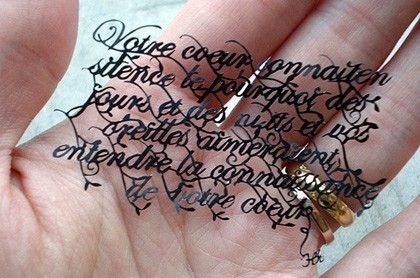 Votre coeur connait en
silence le pourquoi des
jours et des nuits & vos
oreilles aimeraient
entendre la connaissance
de votre coeur